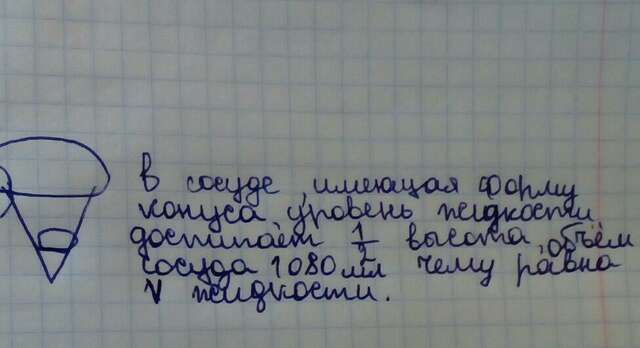 в сосуде, имеющая форму
конуса, уровень жидкости
достигает 1/2 высота, объём
сосуда 1080 мл чему равна
V жидкости.